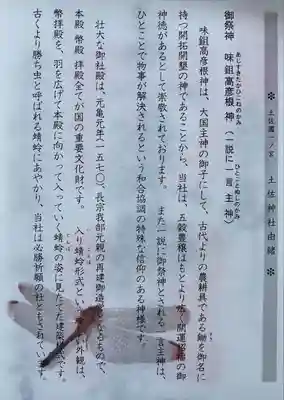 土佐國一ノ宮　土佐神社由緒
御祭神　味鉏高彦根神（一説に一言主神）
あじすきたかひこねのかみ
ひとことぬしのかみ
味鉏高彦根神は、大国主神の御子にして、古代よりの農耕具である鋤を御名に
持つ開拓開墾の神であることから、当社は、五穀豊穣はもとより広く開運招福の御
神徳があるとして崇敬されております。　また一説に御祭神とされる一言主神は、
ひとことで物事が解決されるという和合協調の特殊な信仰のある神様です。
壮大な御社殿は、元亀元年（一五七〇）、長宗我部元親の再建御造営となるもので、
本殿　幣殿　拝殿全てが国の重要文化財です。　入り蜻蛉形式といわれる外観は、
とんぼ
幣拝殿を、羽を広げて本殿に向かって入っていく蜻蛉の姿に見たてた建築様式です。
古くより勝ち虫と呼ばれる蜻蛉にあやかり、当社は必勝祈願の社ともされています。